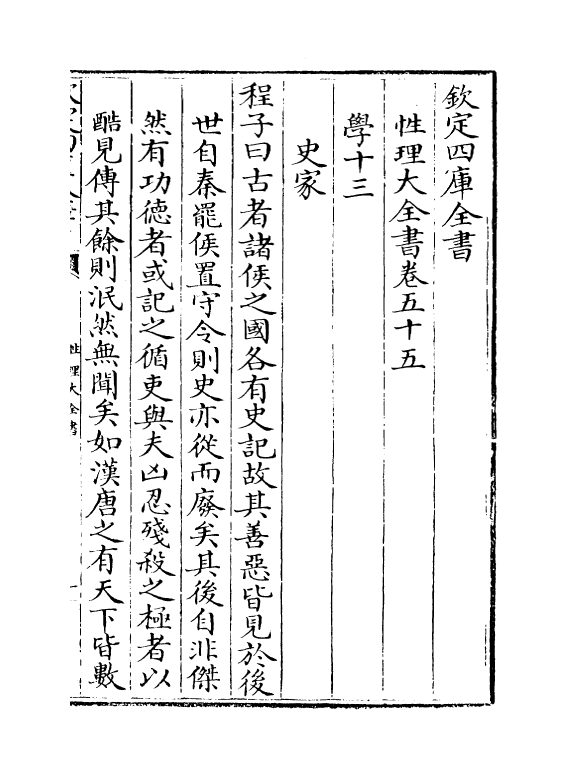 欽定四庫全書
性理大全書卷五十五
學十三
史家
程子曰古者諸侯之國各有史記故其善惡皆見於後
世自秦罷侯置守令則史亦從而廢矣其後自非傑
然有功德者或記之循吏與夫凶忍殘殺之極者以
酷見傳其餘則泯然無聞矣如漢唐之有天下皆數
性理大全書